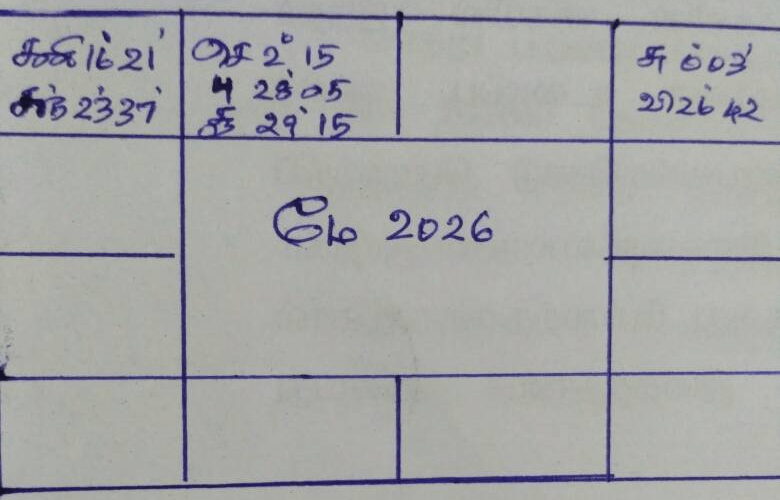 சனி 16° 21'
சந் 23° 37'
செ 2° 15
பு 28° 05
சூ 29° 15
சு 6° 03'
வி 26° 42
மே 2026